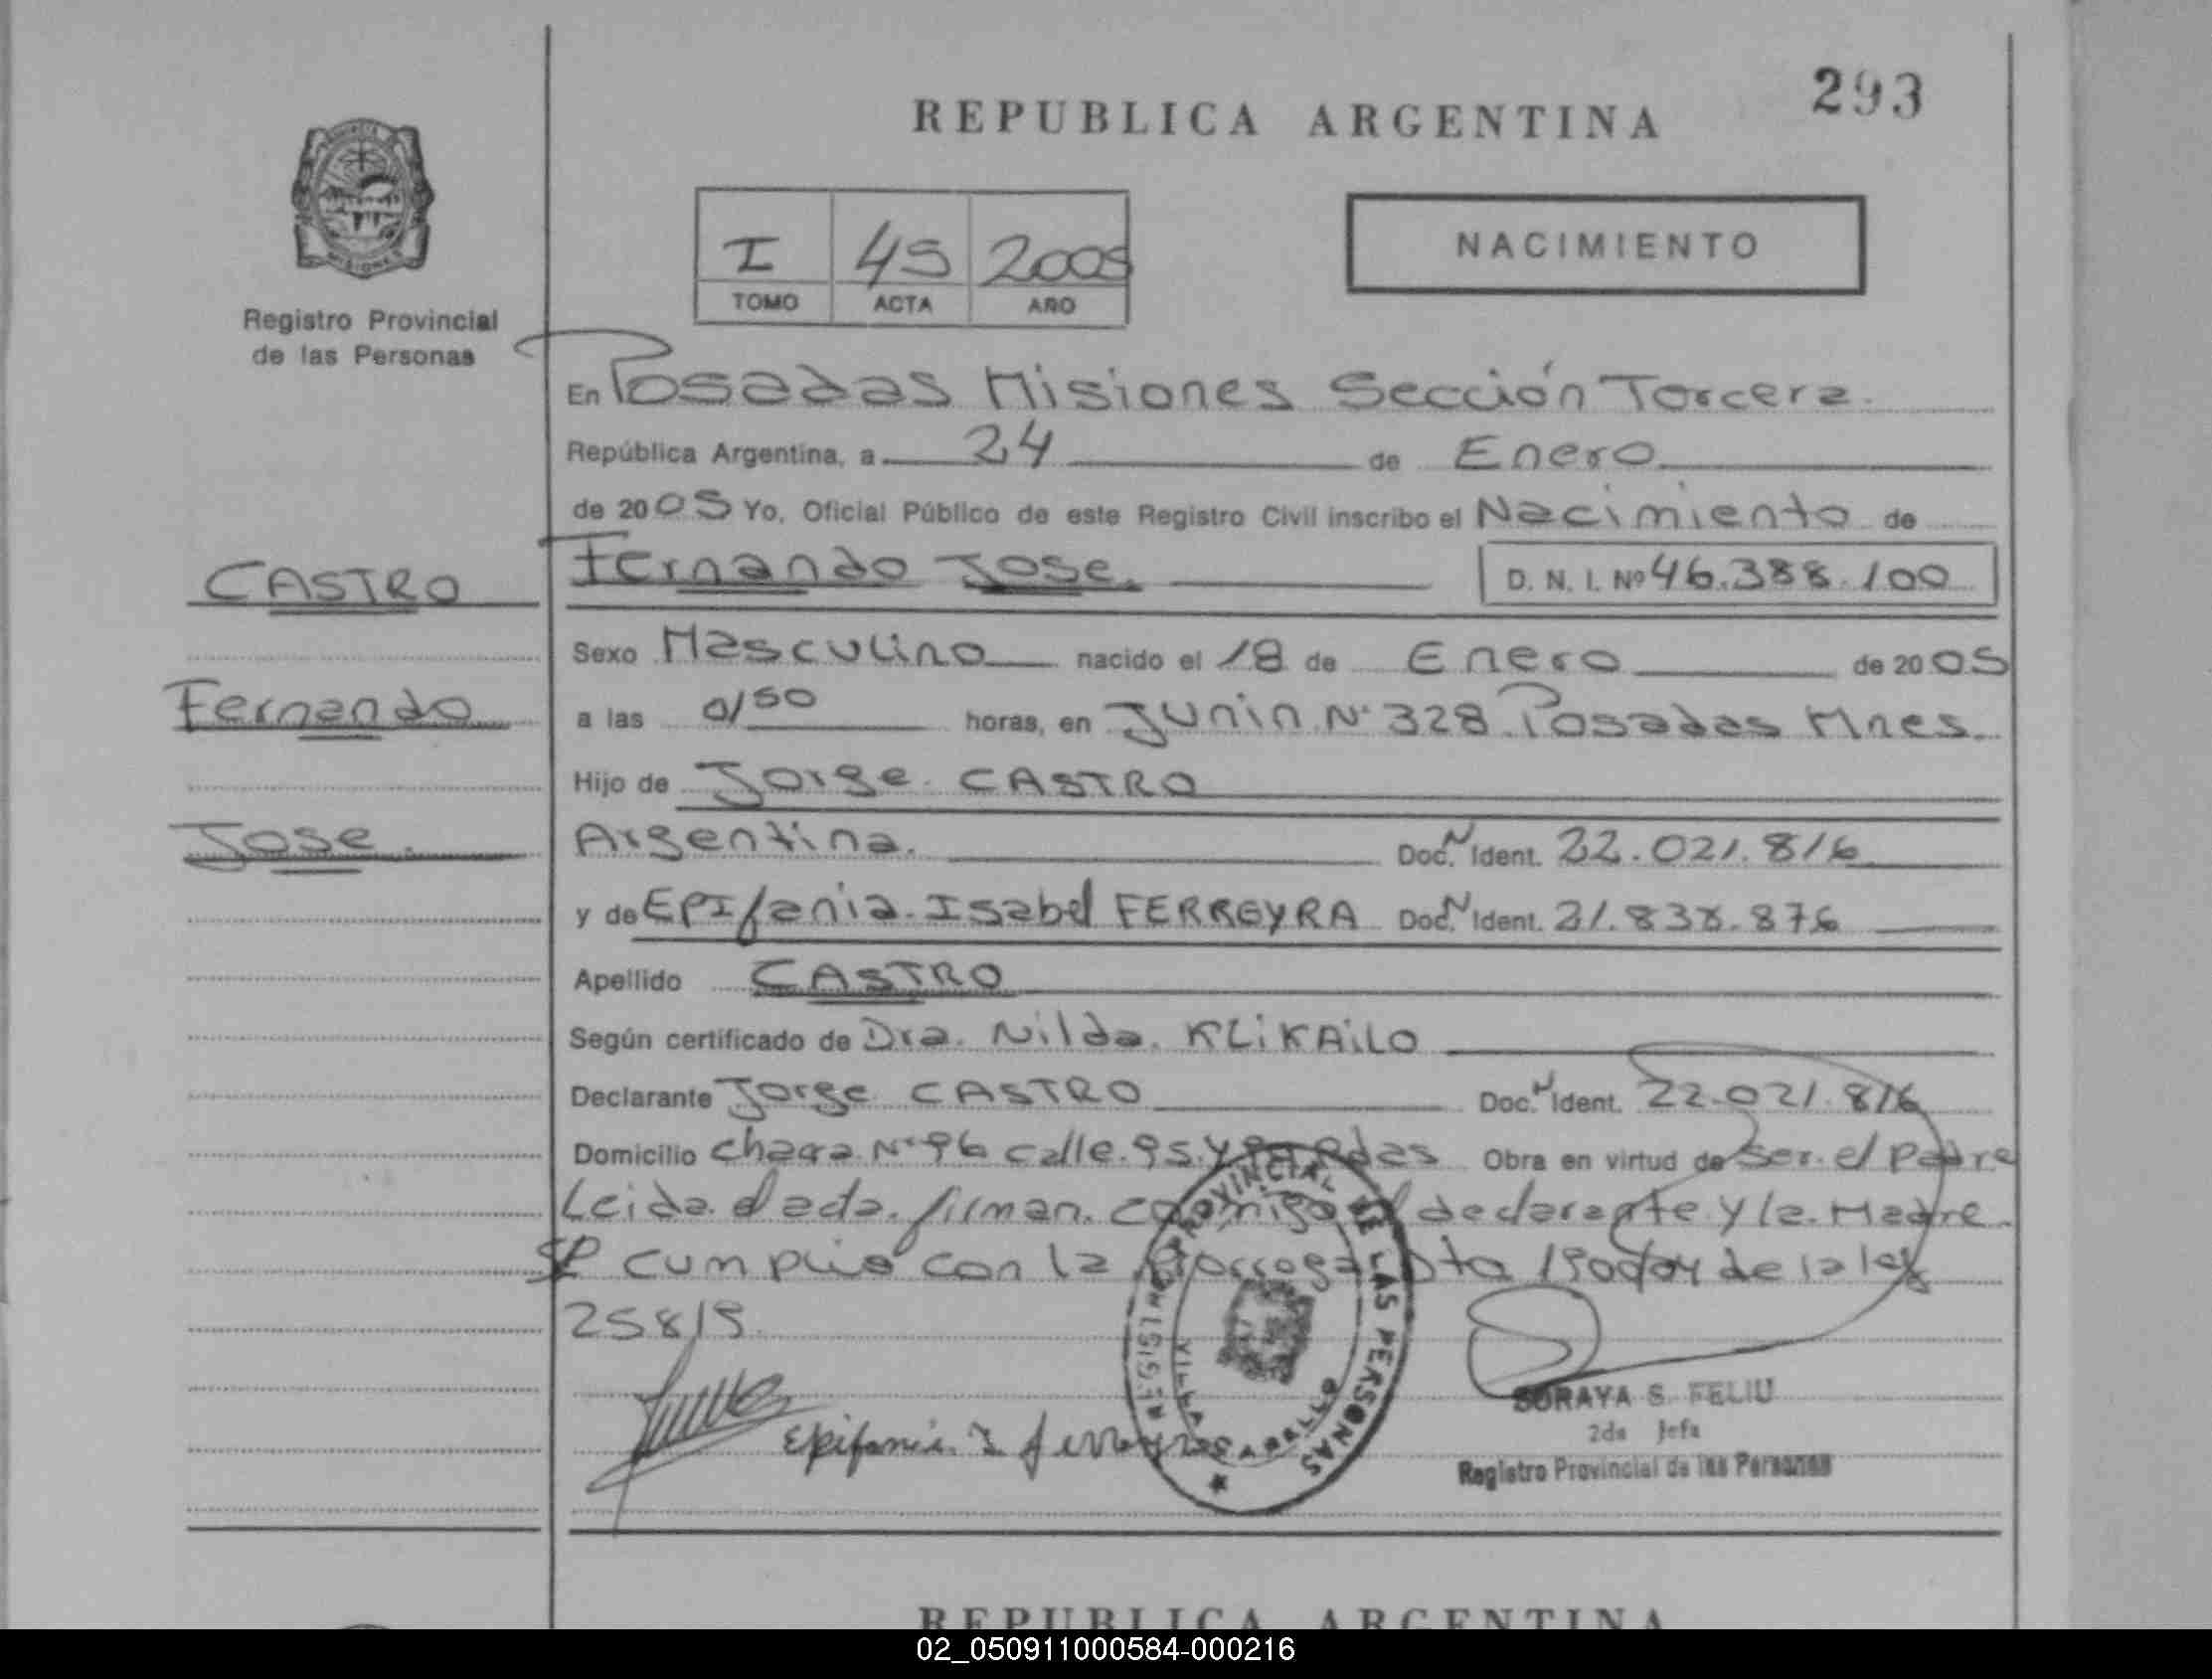 293
REPUBLICA ARGENTINA
NACIMIENTO
I 45 2005
TOMO ACTA AÑO
Registro Provincial
de las Personas
En Posadas Misiones Sección Tercera.
República Argentina, a 24 de Enero
de 2005 Yo, Oficial Público de este Registro Civil inscribo el Nacimiento de
CASTRO
Fernando Jose. D. N. I. Nº 46.388.100
Sexo Masculino nacido el 18 de Enero de 2005
Fernando
a las 0/50 horas, en Junin Nº 328 Posadas Mnes.
Hijo de Jorge CASTRO
Jose.
Argentina. Doc. N Ident. 22.021.816
y de EPIfania Isabel FERREYRA Doc. N Ident. 21.838.876
Apellido CASTRO
Según certificado de Dra. Nilda KLiKAiLO
Declarante Jorge CASTRO Doc. N Ident. 22.021.816
Domicilio Chacra Nº 96 calle 95 y Obra en virtud de Ser el Padre
Leida el acta firman conmigo el declarante y la Madre.
Se cumplio con la Prorroga Dto 190 de la ley
25819.
Epifania I ferreyra
REGISTRO PROVINCIAL DE LAS PERSONAS
VILLA CABELLO
SORAYA S. FELIU
2da Jefa
Registro Provincial de las Personas
REPUBLICA ARGENTINA
02_050911000584-000216